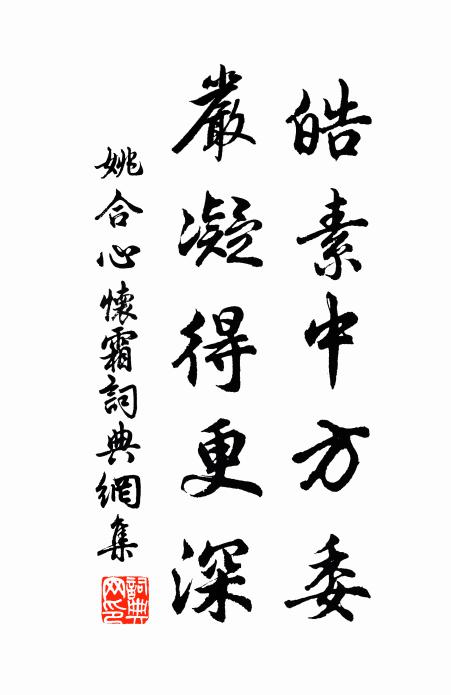 皓素中方委
嚴凝得更深
姚合心懷霜詞典網集
詞典網印